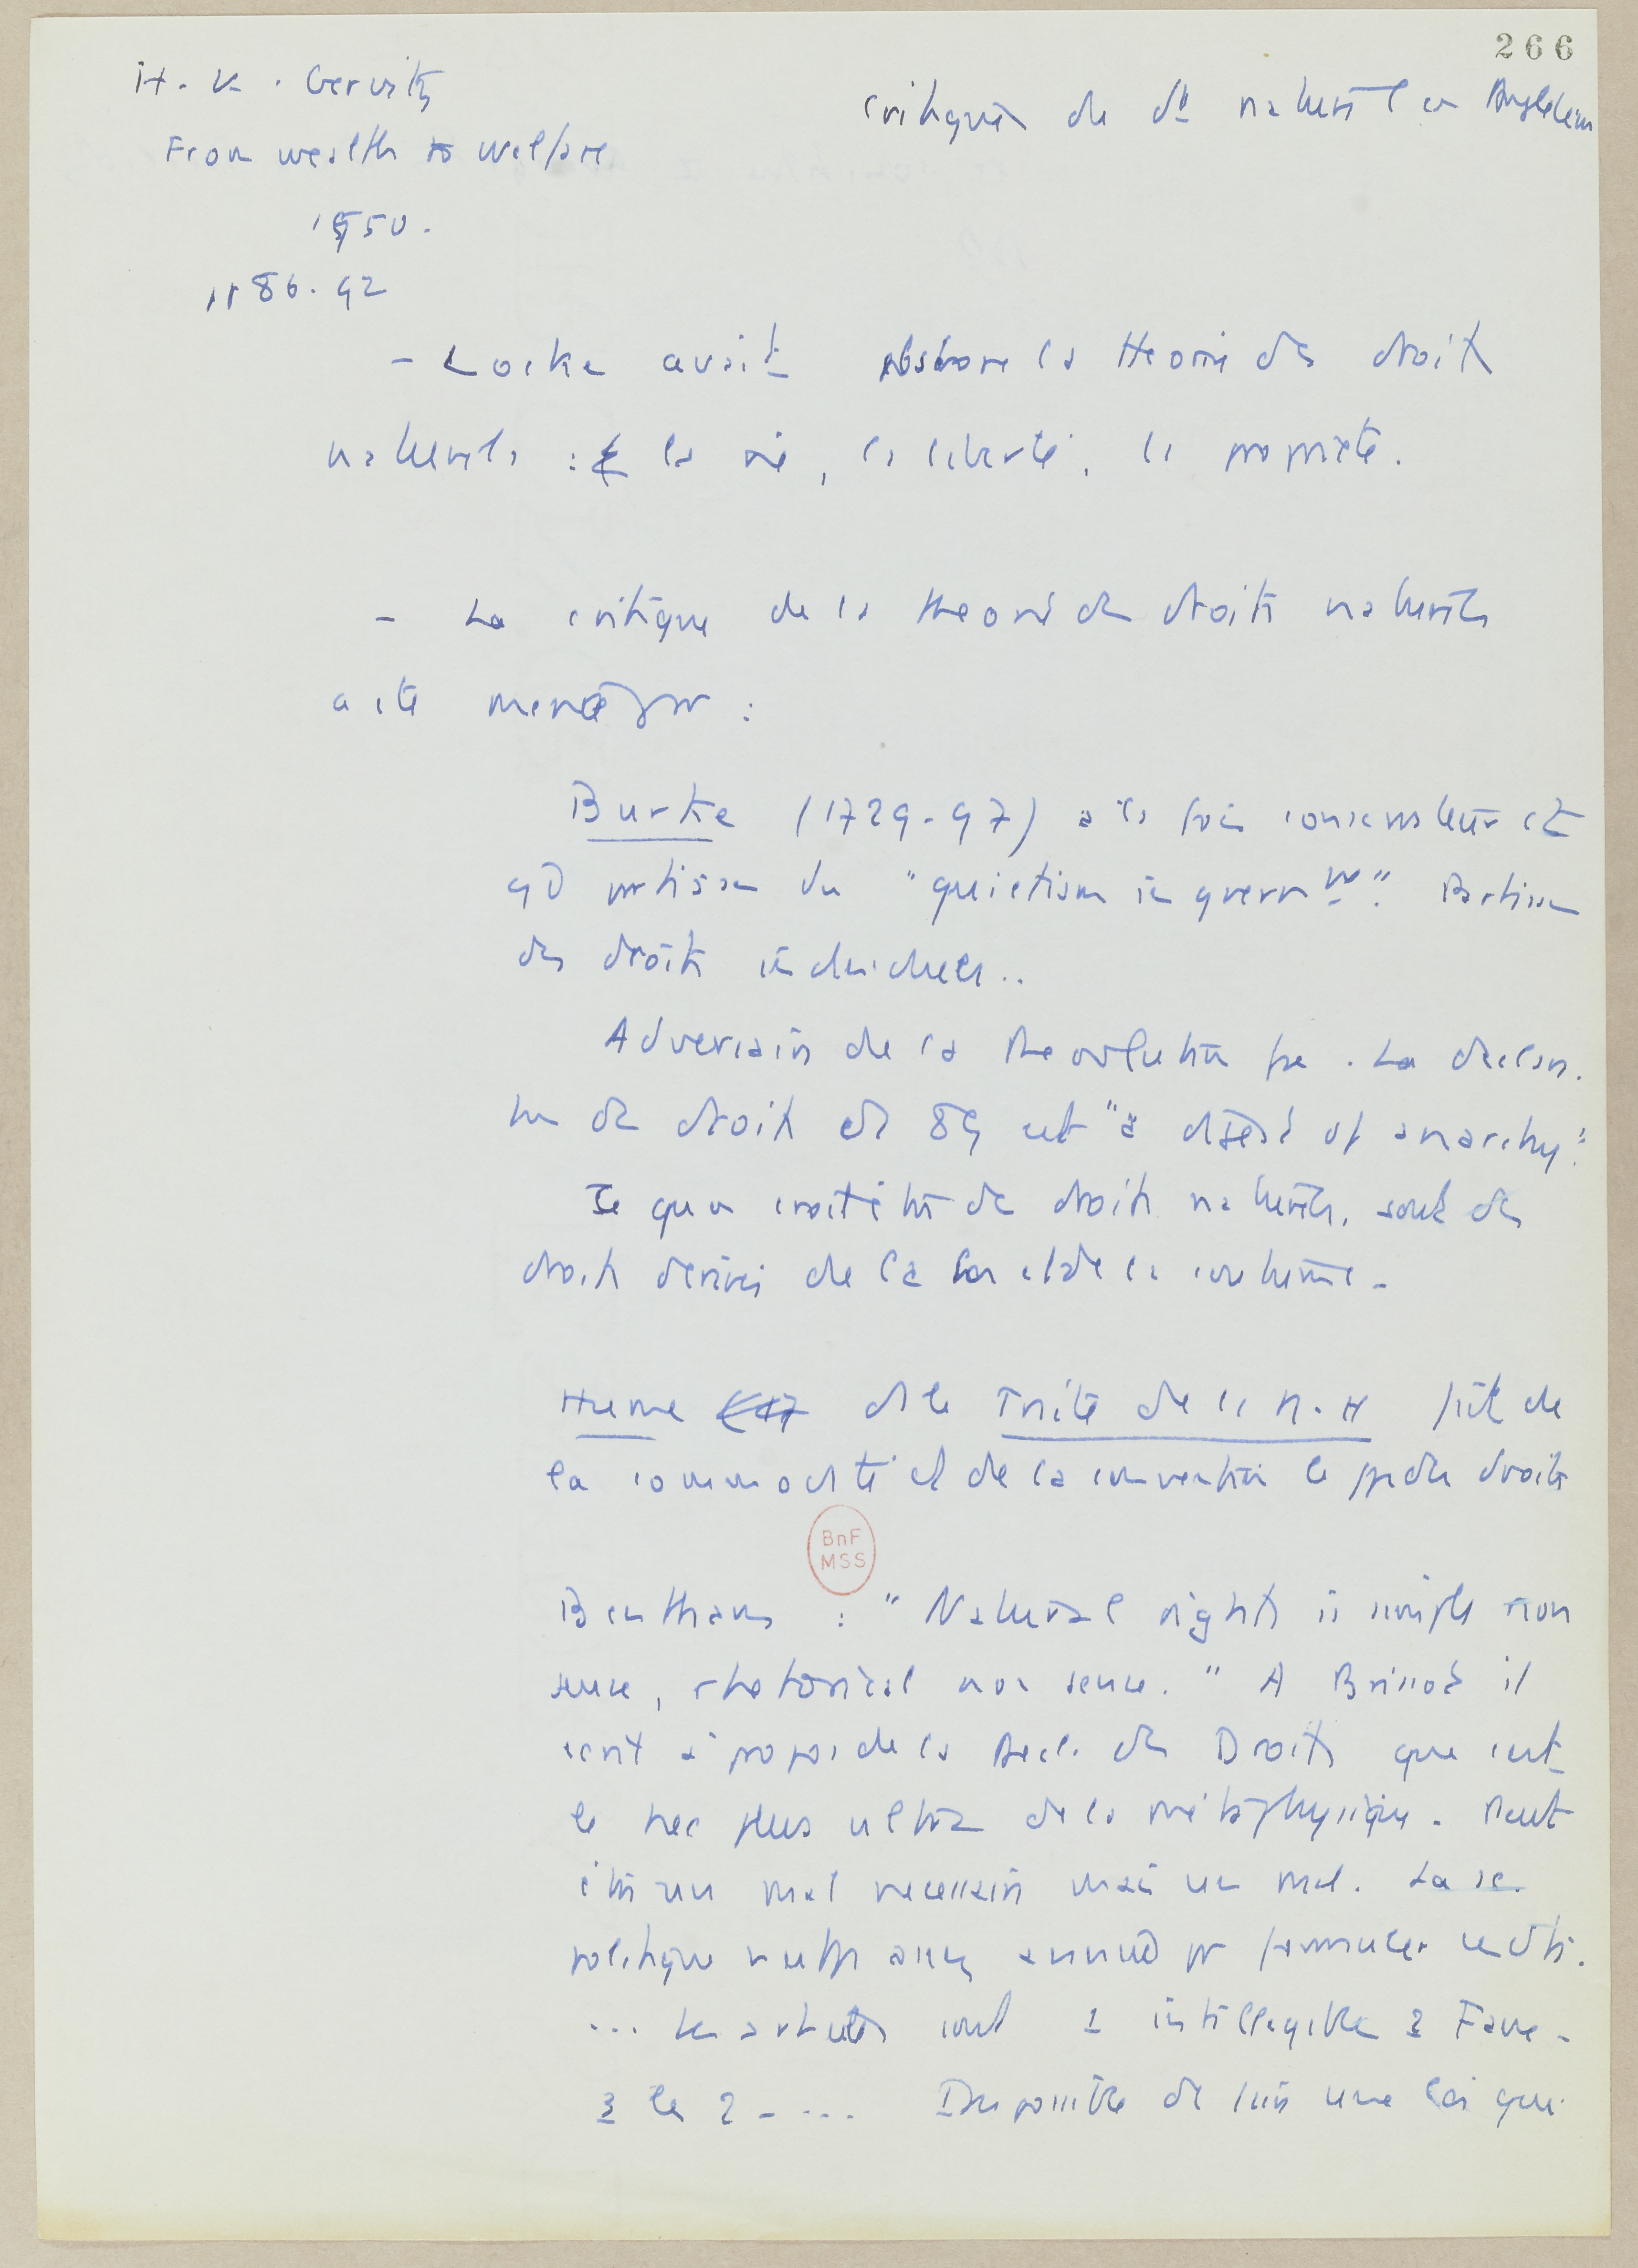 266
H. K. Gervitz
critiques de dt naturel en Angleterre
From wealth to welfare
1950.
pp 86-92
- Locke avait elaboré la theorie des droits
naturels : la vie, la liberté, la propriété.
- La critique de la theorie des droits naturels
a été menée par :
Burke (1729-97) à la fois conservateur et
qd partisan du "quietism in govern mt". Partisan
des droits individuels..
Adversaire de la Revolution fse. La declara-
tion des droits de 89 est "a digest of anarchy".
Ce qu'on croit être des droits naturels, sont des
droits dérivés de la loi et de la coutume.
Hume ds le Traité de la N.H fait de
la commodité et de la convention le ppe des droits
BnF
MSS
Bentham : "Natural rights is simple non
sense, rhetorical non sense." A Brissot il
écrit à propos de la Decl. des Droits que c'est
le nec plus ultra de la métaphysique. Peut
être un mal necessaire mais un mal. La sc.
politique n'est pas assez avancée pr formuler
... les articles sont 1 intelligible 2 Faux -
3 les 2 - ... Impossible de faire une loi qui